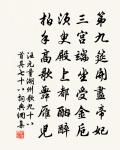 第九筵開盡帝妃
三宮端坐受金卮
須臾殿上都酣醉
拍手高歌舞雁兒
汪元量湖州歌九十八
首其七十八詞典網集